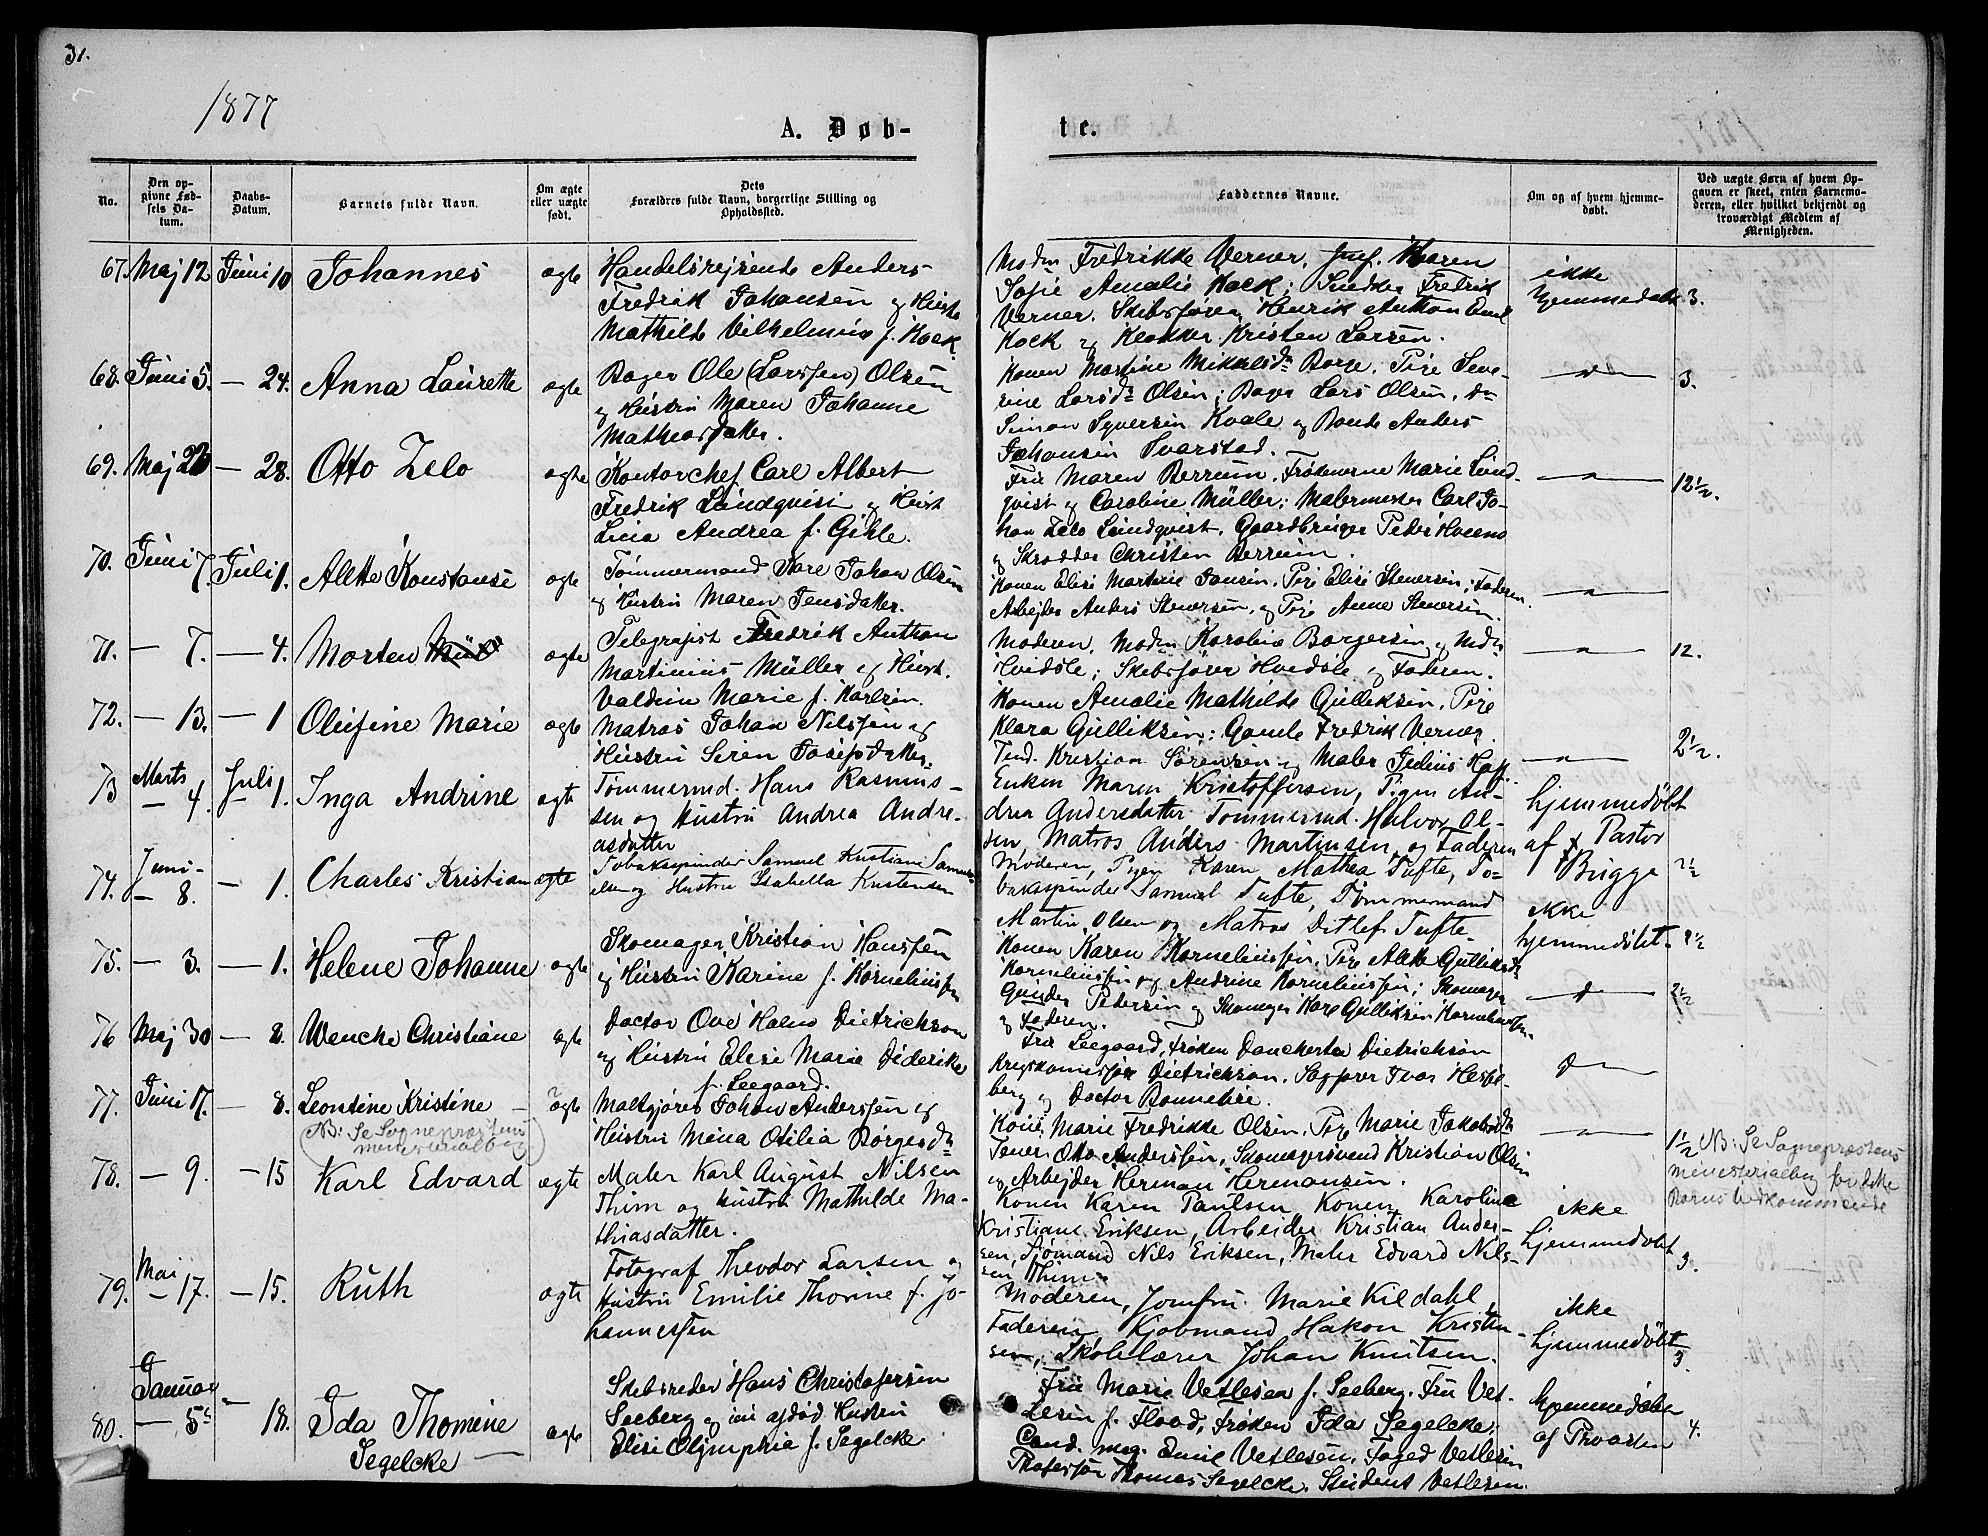 31.
1877
A. Døb-
te.
No.
Den op-
givne Fød-
sels Da-
tum.
Daabs-
Datum.
Barnets fulde Navn.
Om ægte
eller uægte
født.
Dets
Forældres fulde Navn, borgerlige Stilling og
Opholdssted.
Faddernes Navne.
Om og af hvem hjemme-
døbt.
Ved uægte Børn af hvem Op-
gaven er skeet, enten Barnemo-
deren, eller hvilket bekjendt og
troværdigt Medlem af
Menigheden.
67. Maj 12 Juni 10 Johannes ægte
Handelsrejsende Anders
Fredrik Johansen og Hustr
Mathilde Vilhelmine f. Kock.
Madm Fredrikke Verner, Jmf. Maren
Sofie Amalie Kock; Snedker Fredrik
Verner, Skibsfører Henrik Anthon Emil
Kock og Klokker Kristen Larsen.
ikke
hjemmedøbt
3.
68. Juni 5. — 24. Anna Laurette ægte
Bager Ole (Larssen) Olsen
og Hustru Maren Johanne
Mathiasdatter.
Konen Martine Mikkelsdr Borge, Pige Seve-
rine Larsdr Olsen; Bager Lars Olsen, do
Simon Syversen Kvale og Bonde Anders
Johansen Svarstad.
3.
69. Maj 28. Otto Zelo ægte
Kontorchef Carl Albert
Fredrik Lundqvist og Hustr
Lina Andrea f. Gihle.
Fru Maren Berrum, Frøknerne Marie Lund-
qvist og Caroline Müller; Malermester Carl Jo-
han Zelo Lundqvist, Gaardbruger Peder
og Skrædder Christen Berrum.
12½.
70. Juni 7. Juli 1. Alette Konstanse ægte
Tømmermand Kare Johan Olsen
og Hustru Maren Jensdatter.
Konen Elise Martine Jansen, Pige Elise Stenersen; Faderen,
Arbejder Anders Stenersen, og Pige Anne Stenersen.
71. — 7. — 4. Morten ægte
Telegrafist Fredrik Anthon
Martinius Müller og Hustr.
Valdine Marie f. Karlsen.
Moderen, Madm Karoline Borgersen og Mdm
Hvidsle; Skibsfører Hvidsle og Faderen.
12.
72. — 13. — 1 Olefine Marie ægte
Matros Johan Nilssen og
Hustru Seren Josefsdatter.
Konen Amalie Mathilde Gulliksen, Pige
Klara Gulliksen; Gamle Fredrik Verner,
Kristian Sørensen og Maler
2½.
73 Marts — 4. Juli — 1. Inga Andrine ægte
Tømmermd. Hans Rasmus-
sen og Hustru Andrea Andre-
asdatter
Enken Maren Kristoffersen, Pigen An-
drea Andersdatter Tømmermd. Halvor Ol-
sen, Matros Anders Martinsen og Faderen
hjemmedøbt
af Pastor
Brigge
74. Juni — 8. — 1. Charles Kristian ægte
Tobakspinder Samuel Kristian Samu-
elsen og Hustru Isabella Kristensen
Moderen, Pigen Karen Mathea Tufte, To-
bakspinder Samuel Tufte, Tømmermand
Martin Olsen og Matros Ditlef Tufte
ikke
hjemmedøbt.
2½
75. — 3. — 1. Helene Johanne ægte
Skomager Kristian Hanssen
og Hustru Karine f. Korneliussen
Konen Karen Korneliussen, Pige Alette Gulliksdr
Korneliussen og Andrine Korneliussen; Skomager
Gunder Pedersen og Skomager Kare Gulliksen Korneliussen
og Faderen.
2½
76 Maj 30 — 8. Wencke Christiane ægte
Doctor Ove Holm Dietrichson
og Hustru Elise Marie Diderikke
f. Seegaard.
Fru Seegaard, Frøken Danchertea Dietrichson
Krigskommissær Dietrichson, Sagfører Ivar Hessel-
berg og Doctor Bonnevie.
77. Juni 17. — 8. Leontine Kristine ægte
NB: Se Sogneprestens
ministerialbog
Maltgjører Johan Anderssen og
Hustru Mina Otilia Børgesdr
Kone Marie Fredrikke Olsen, Pige Marie Jakobsdr
Otto Anderssen, Skomagersvend Kristian Olsen
og Arbejder Herman Hermansen.
1½ NB: Se Sogneprestens
ministerialbog for dette
Barns Vedkommende
78. — 9. — 15 Karl Edvard ægte
Maler Karl August Nilsen
Thim og Hustru Mathilde Ma-
thiasdatter.
Konen Karen Paulsen, Konen Karoline
Kristiane Eriksen, Arbeider Kristian Ander-
sen, Sjømand Nils Eriksen, Maler Edvard Nil-
sen Thim.
ikke
hjemmedøbt
3.
79. Mai — 17. — 15. Ruth ægte
Fotograf Theodor Larsen og
Hustru Emilie Thorine f. Jo-
hannessen
Moderen, Jomfru Marie Kildahl,
Faderen, Kjøbmand Hakon Kristen-
sen, Skolelærer Johan Knutsen.
ikke
hjemmedøbt
3.
80. Januar — 5. 18. Ida Thomine
Segelcke ægte
Skibsreder Hans Christofersen
Seeberg og nu afdød Hustru
Elise Olympia f. Segelcke.
Fru Marie Vetlesen f. Seeberg, Fru Vet-
lesen f. Flood, Frøken Ida Segelcke;
Cand. mag. Emil Vetlesen, Foged Vetlesen
Professor Thomas Segelcke, Student Vetlesen.
hjemmedøbt
af Provsten
4.